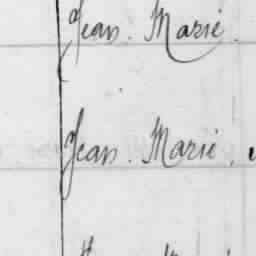 Jean. Marie.
Jean. Marie.